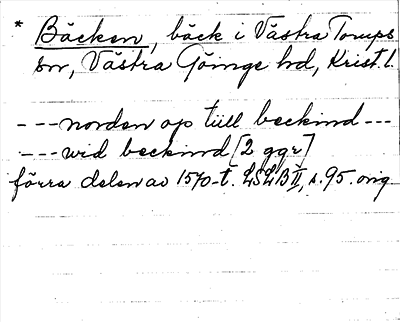 * Bäcken, bäck i Västra Torups
sn, Västra Göinge hd, Krist. l.
---norden op tiill beckind---
---wid beckind [2 ggr]
förra delen av 1570-t. LSLB II, s. 95. orig.